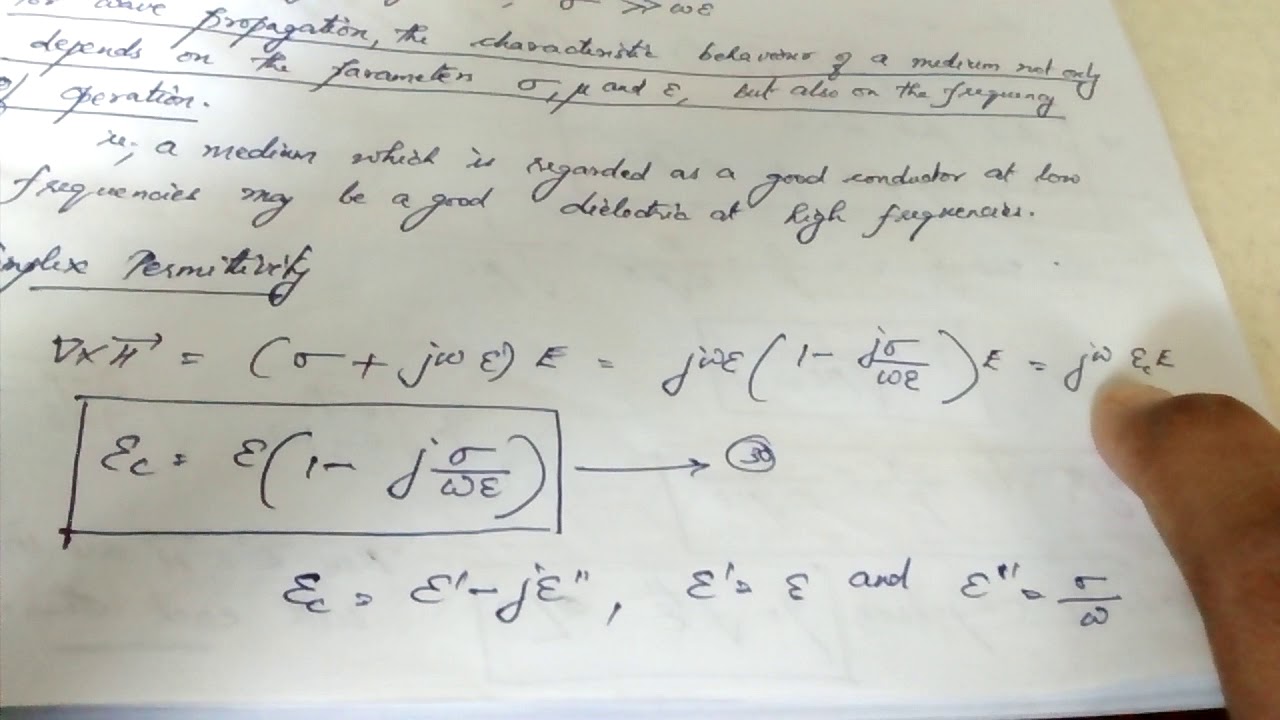 σ >> ωε
for wave propagation, the characteristic behaviour of a medium not only
depends on the parameters σ, μ and ε, but also on the frequency
of operation.
ie; a medium which is regarded as a good conductor at low
frequencies may be a good dielectric at high frequencies.
mplex Permitivity
∇×H⃗ = (σ + jωε) E = jωε(1 - jσ/ωε)E = jω ε_c E
ε_c = ε(1 - j σ/ωε) → 30
ε_c = ε' - jε'', ε' = ε and ε'' = σ/ω